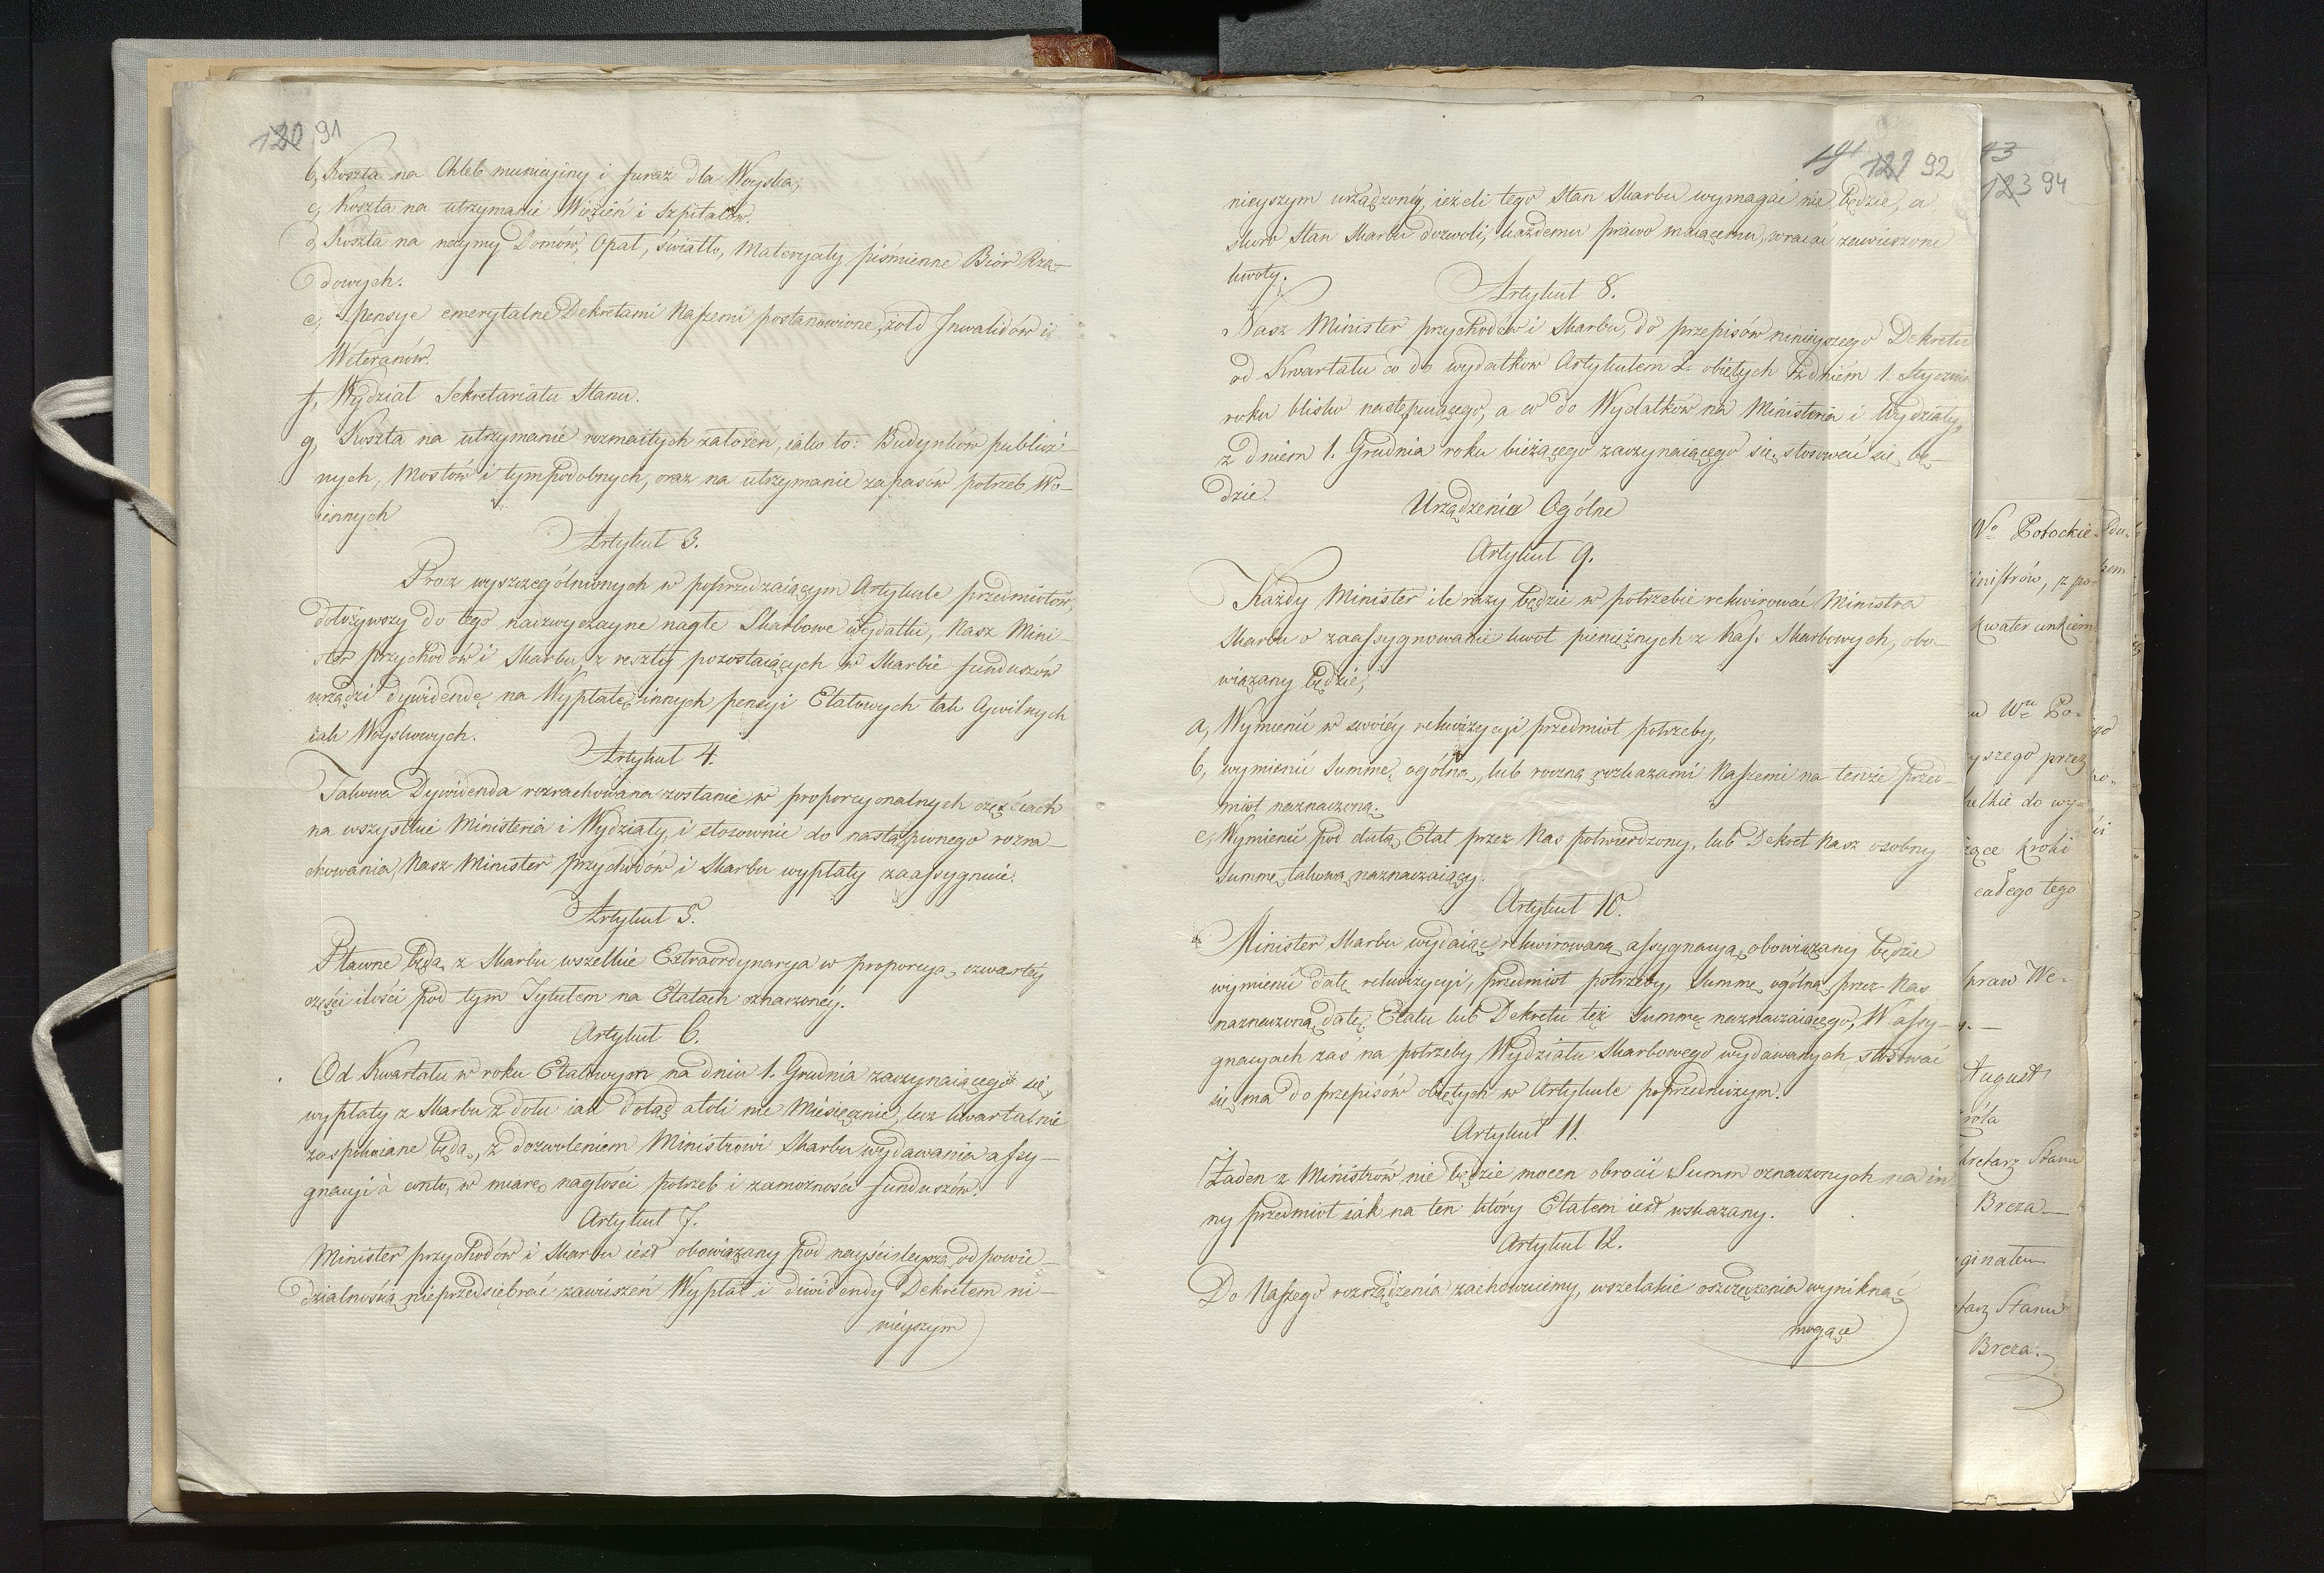 120 91
b, Koszta na Chleb municyiny i furaż dla Woyska,
c, Koszta na utrzymanie Więzień i Szpitalów.
d, Koszta na naymy Domów, Opał, światło, Materyały piśmienne Biór Rzą-
dowych.
e, pensye emerytalne Dekretami Naszemi postanowione, żołd Inwalidów i
Weteranów.
f, Wydział Sekretariatu Stanu.
g, Koszta na utrzymanie rozmaitych założeń, iako to: Budynków publicz-
nych, Mostów i tym podobnych, oraz na utrzymanie zapasów potrzeb Wo-
iennych
Artykuł 3.
Prócz wyszczególnionych w poprzedzaiącym Artykule przedmiotów,
dołożywszy do tego nadzwyczayne nagłe Skarbowe wydatki, Nasz Mini-
ster przychodów i Skarbu, z reszty pozostaiących w Skarbie funduszów
urządzi dywidendę na Wypłatę innych pensyi Etatowych tak Cywilnych
iak Woyskowych.
Artykuł 4.
Takowa Dywidenda rozrachowana zostanie w proporcyonalnych częściach
na wszystkie Ministeria i Wydziały, i stosownie do nastąpionego rozra-
chowania, Nasz Minister przychodów i Skarbu wypłaty zaassygnuie.
Artykuł 5.
Pławne będą z Skarbu wszelkie Extraordynarya w proporcyą czwartéy
części ilości pod tym Tytułem na Etatach oznaczonéy.
Artykuł 6.
Od Kwartału w roku Etatowym na dniu 1. Grudnia zaczynaiącego się,
wypłaty z Skarbu z dołu iak dotąd atoli nie Miesięcznie, lecz kwartalnie
zaspokaiane będą, z dozwoleniem Ministrowi Skarbu wydawania assy-
gnacyi à conto, w miarę nagłości potrzeb i zamożności funduszów.
Artykuł 7.
Minister przychodów i Skarbu iest obowiązany pod nayściśleyszą odpowie-
dzialnością nieprzedsiębrać zawieszeń Wypłat i diwidendy Dekretem ni-
nieyszym
121 92
nieyszym urządzonéy, ieżeli tego Stan Skarbu wymagać nie będzie, a
skoro Stan Skarbu dozwoli, każdemu prawo maiącemu, wracać zawieszone
kwoty.
Artykuł 8.
Nasz Minister przychodów i Skarbu, do przepisów ninieyszego Dekretu
od Kwartału co do wydatków Artykułem 2. obiętych z dniem 1. Stycznia
roku blisko następuiącego, a co do Wydatków na Ministeria i Wydziały,
z dniem 1. Grudnia roku bieżącego zaczynaiącego się, stosować się bę-
dzie.
Urządzenia Ogólne
Artykuł 9.
Każdy Minister ile razy będzie w potrzebie rekwirować Ministra
Skarbu o zaassygnowanie kwot pieniężnych z Kass Skarbowych, obo-
wiązany będzie;
a, Wymienić w swoiéy rekwizycyi przedmiot potrzeby,
b, wymienić Summę ogólną, lub roczną rozkazami Naszemi na tenże przed-
miot naznaczoną.
c, Wymienić pod datą Etat przez Nas potwierdzony, lub Dekret Nasz osobny
Summę takową naznaczaiący.
Artykuł 10.
Minister Skarbu wydaiąc rekwirowaną assygnacyą, obowiązany będzie
wymienić datę rekwizycyi, przedmiot potrzeby, Summę ogólną przez Nas
naznaczoną, datę Etatu lub Dekretu też Summę naznaczaiącego, W assy-
gnacyach zas na potrzeby Wydziału Skarbowego wydawanych, stosować
się ma do przepisów obiętych w Artykule poprzedniczym.
Artykuł 11.
Żaden z Ministrów nie będzie mocen obrócić Summ oznaczonych na in
ny przedmiot iak na ten który Etatem iest wskazany.
Artykuł 12.
Do Naszego rozrządzenia zachowuiemy, wszelakie oszczędzenia wyniknąć
mogące
123 94
Wo Potockie
inistrów, z po-
kwaterunkiem
u Wu Po-
yszego przez
kelkie do wy-
iące kroki
całego tego
praw We-
August
róla
kretarz Stanu
Breza
ginałem
tarz Stanu
Breza.